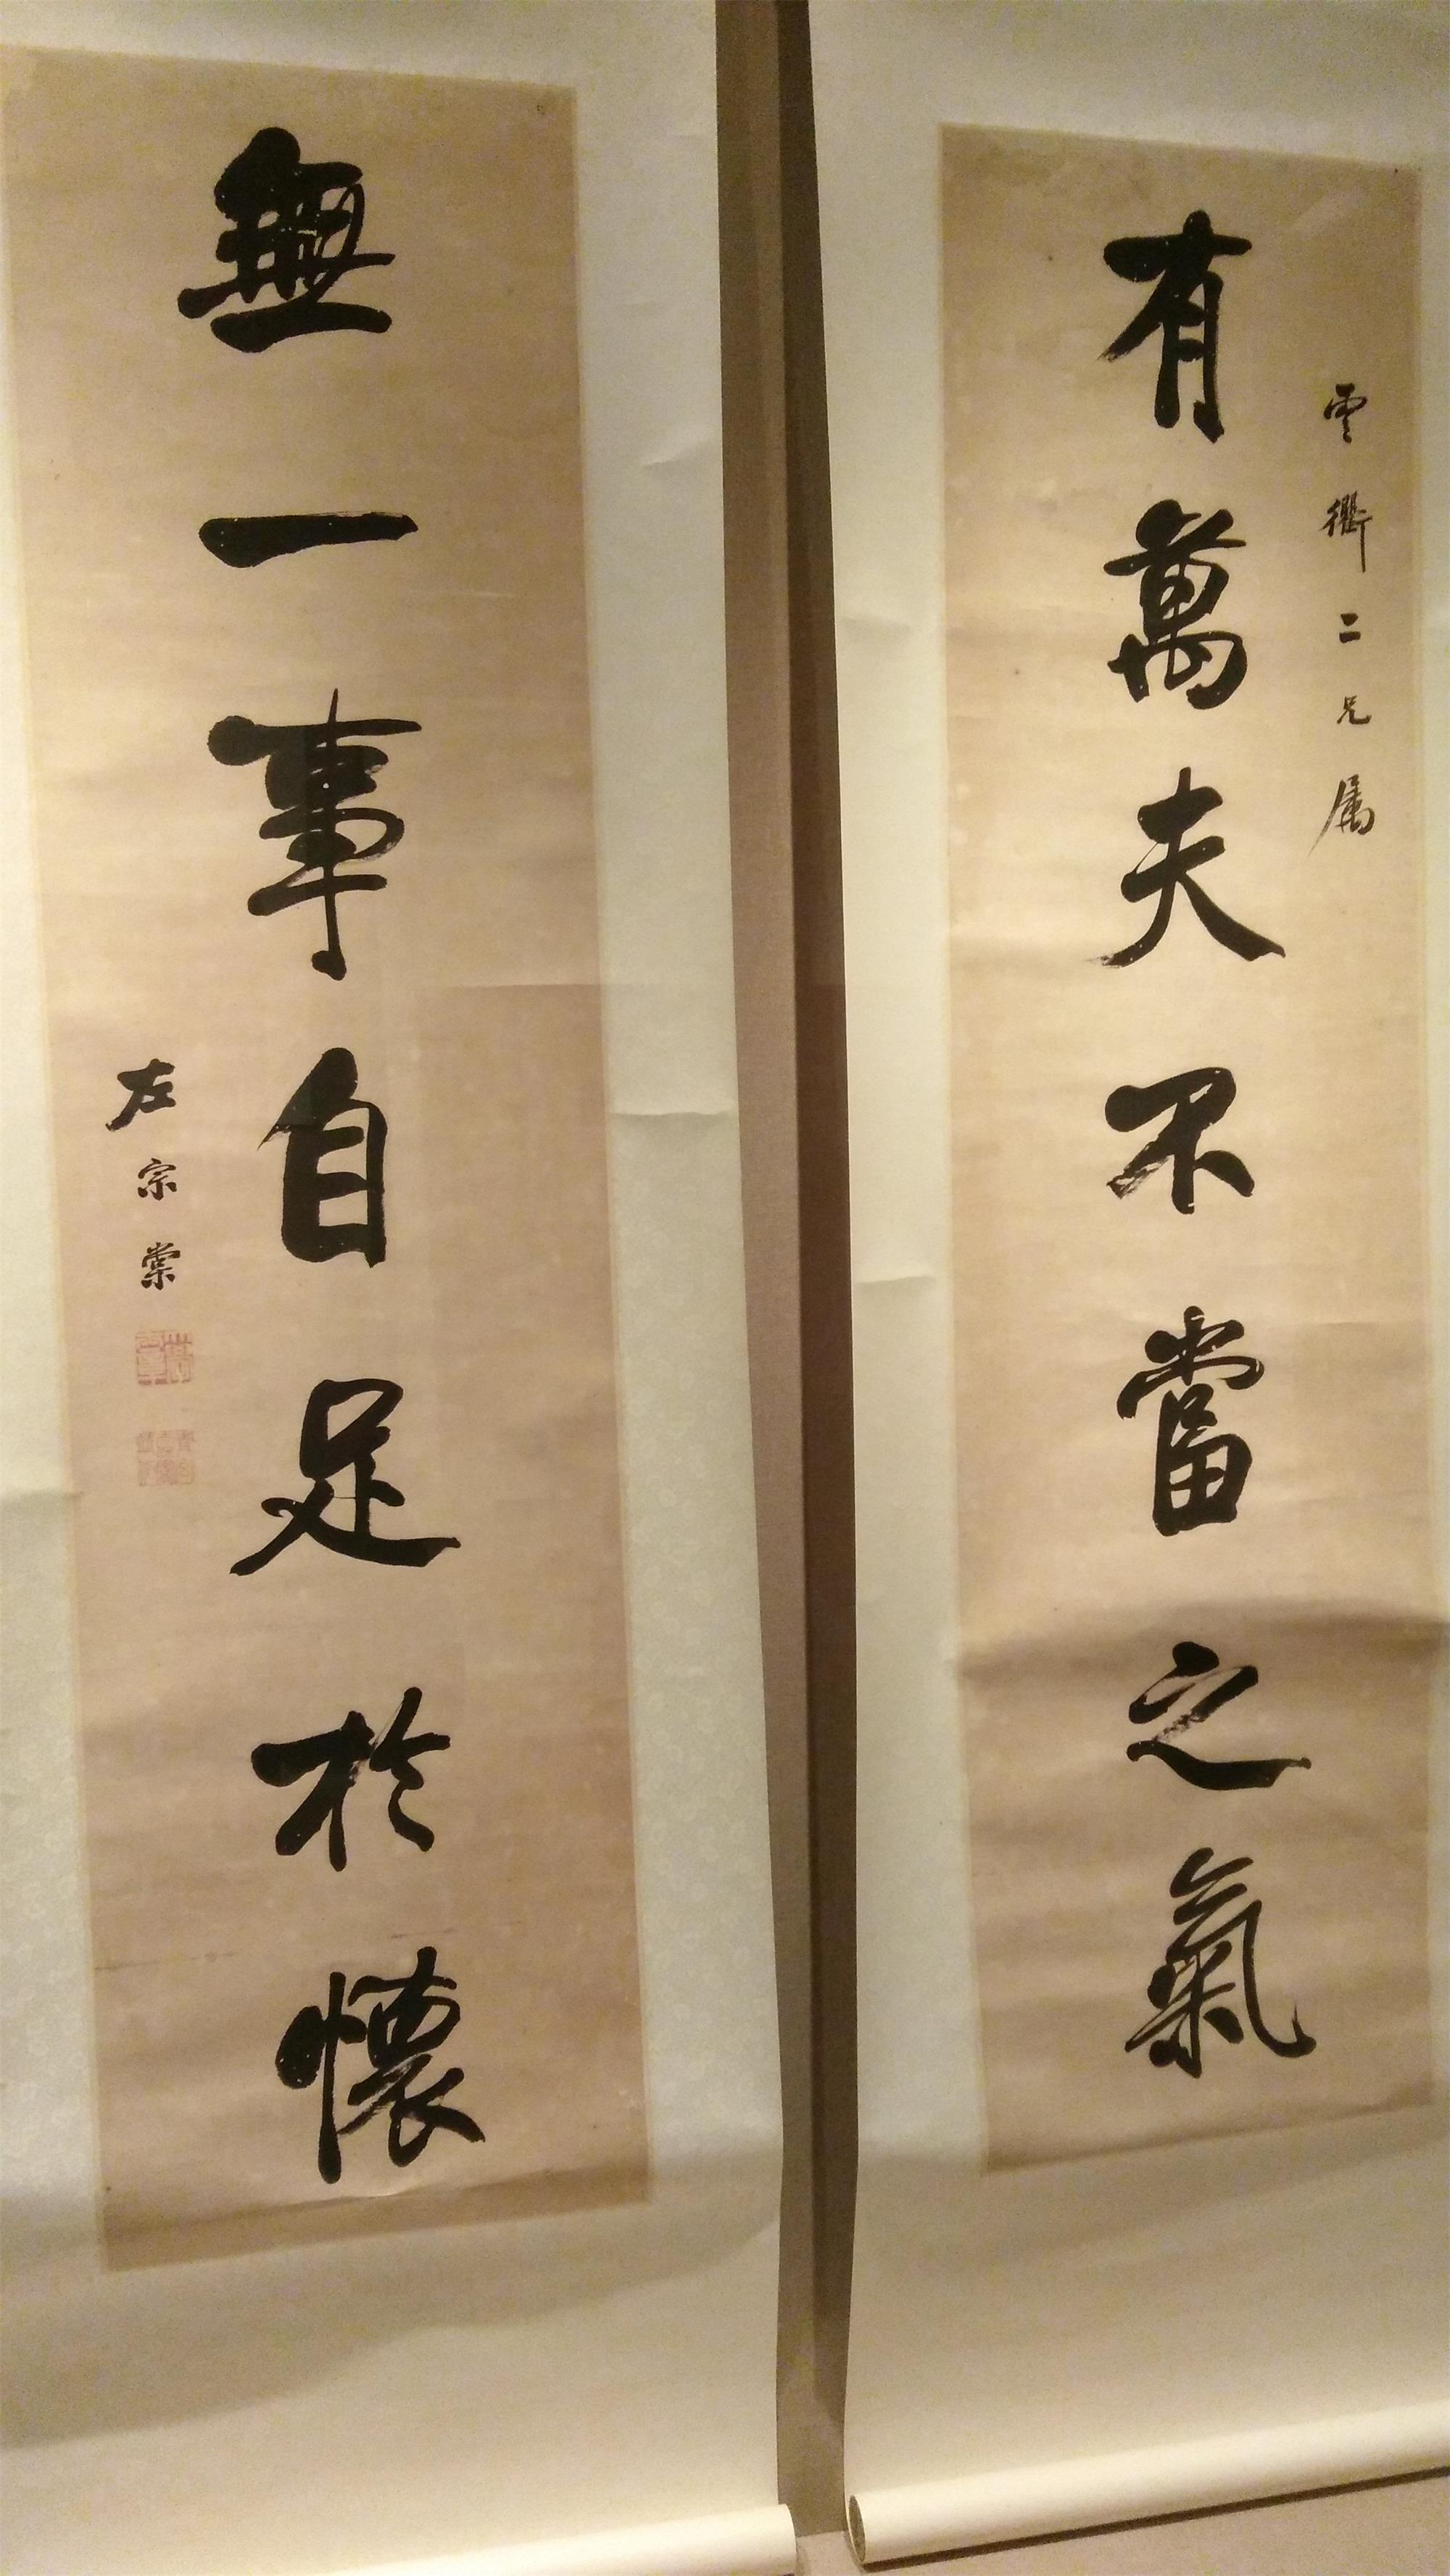 雲衢二兄属
有萬夫不當之氣
無一事自足於懷
左宗棠